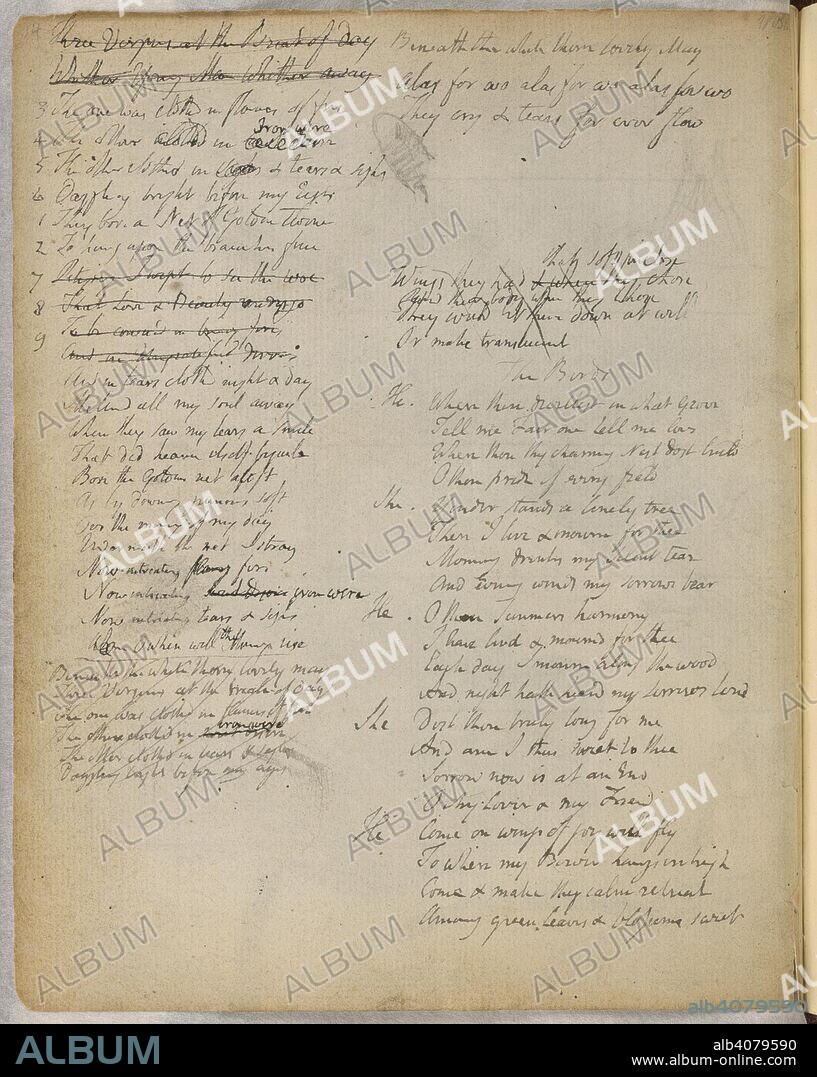 14
Three Virgins at the Break of day
Whither Young Man whither away
3 The one was clothd in flames of fire
4 The other clothd in Iron wire
5 The other clothd in tears & sighs
6 Dazzling bright before my Eyes
1 They bore a Net of Golden twine
2 To hang upon the branches fine
7 Pitying I wept to see the woe
8 That Love & Beauty undergo
9 To be consumd in burning fires
And in Ungratified desires
And in tears clothd night & day
Melted all my soul away
When they saw my tears a smile
That did heaven itself beguile
Bore the Golden net aloft
As by downy pinions soft
Oer the morning of my day
Underneath the net I stray
Now intreating flaming fire
Now intreating iron wire
Now intreating tears & sighs
O when will the morning rise
Beneath the white thorn lovely may
Three Virgins at the break of day
The one was clothd in flames of fire
The other clothd in iron wire
The other clothd in tears & sighs
Dazzling bright before my eyes
Beneath the white thorn lovely May
Alas for wo alas for wo alas for wo
They cry & tears for ever flow
that soft inclose
Wings they had & when they chose
Round their body when they chose
They would let them down at will
Or make translucent
The Birds
He . Where thou dwellest in what Grove
Tell me Fair one tell me love
Where thou thy charming Nest dost build
O thou pride of every field
She . Yonder stands a lonely tree
There I live & mourn for thee
Morning drinks my silent tear
And Evening winds my sorrows bear
He . O thou Summers harmony
I have livd & mournd for thee
Each day I mourn along the wood
And night hath heard my sorrows loud
She Dost thou truly long for me
And am I thus sweet to thee
Sorrow now is at an End
O My Lover & my Friend
He Come on wings of joy well fly
To where my Bower hangs on high
Come & make thy calm retreat
Among green leaves & blossoms sweet
ALBUM
alb4079590
ALBUM
alb4079590
www.album-online.com